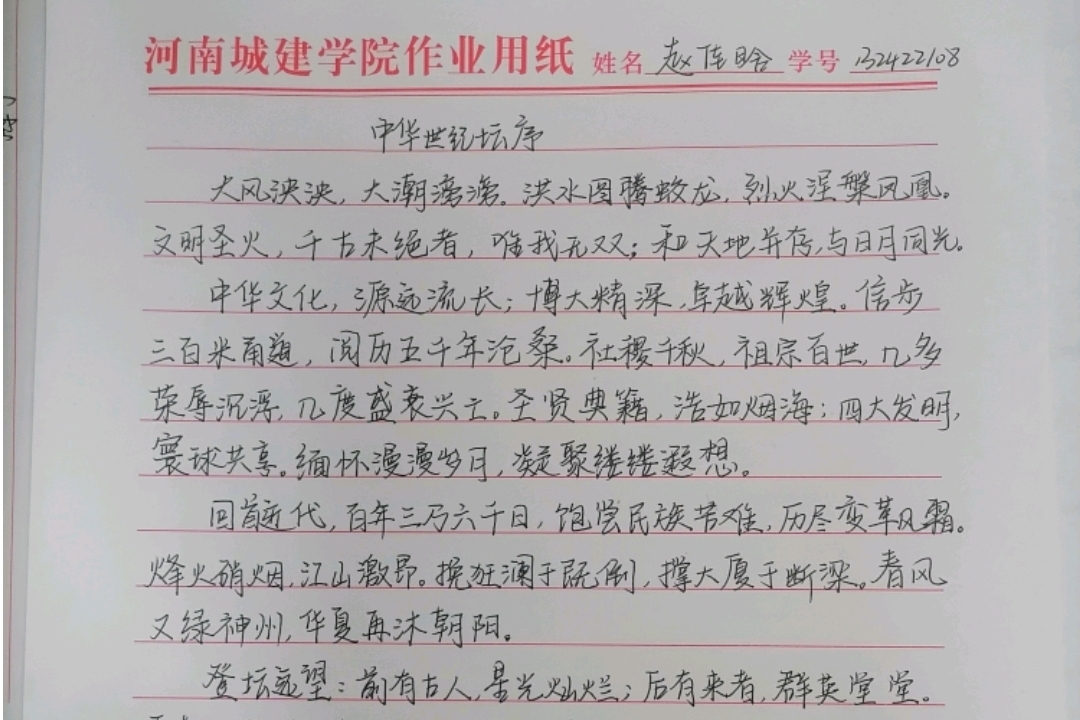 河南城建学院作业用纸 姓名 赵佳晗 学号 132422108
中华世纪坛序
大风泱泱，大潮滂滂。洪水图腾蛟龙，烈火涅槃凤凰。
文明圣火，千古未绝者，唯我无双；和天地并存，与日月同光。
中华文化，源远流长；博大精深，卓越辉煌。信步
三百米甬道，阅历五千年沧桑。社稷千秋，祖宗百世，几多
荣辱沉浮，几度盛衰兴亡。圣贤典籍，浩如烟海；四大发明，
寰球共享。缅怀漫漫岁月，凝聚缕缕遐想。
回首近代，百年三万六千日，饱尝民族苦难，历尽变革风霜。
烽火硝烟，江山激昂。挽狂澜于既倒，撑大厦于断梁。春风
又绿神州，华夏再沐朝阳。
登坛远望：前有古人，星光灿烂；后有来者，群英堂堂。